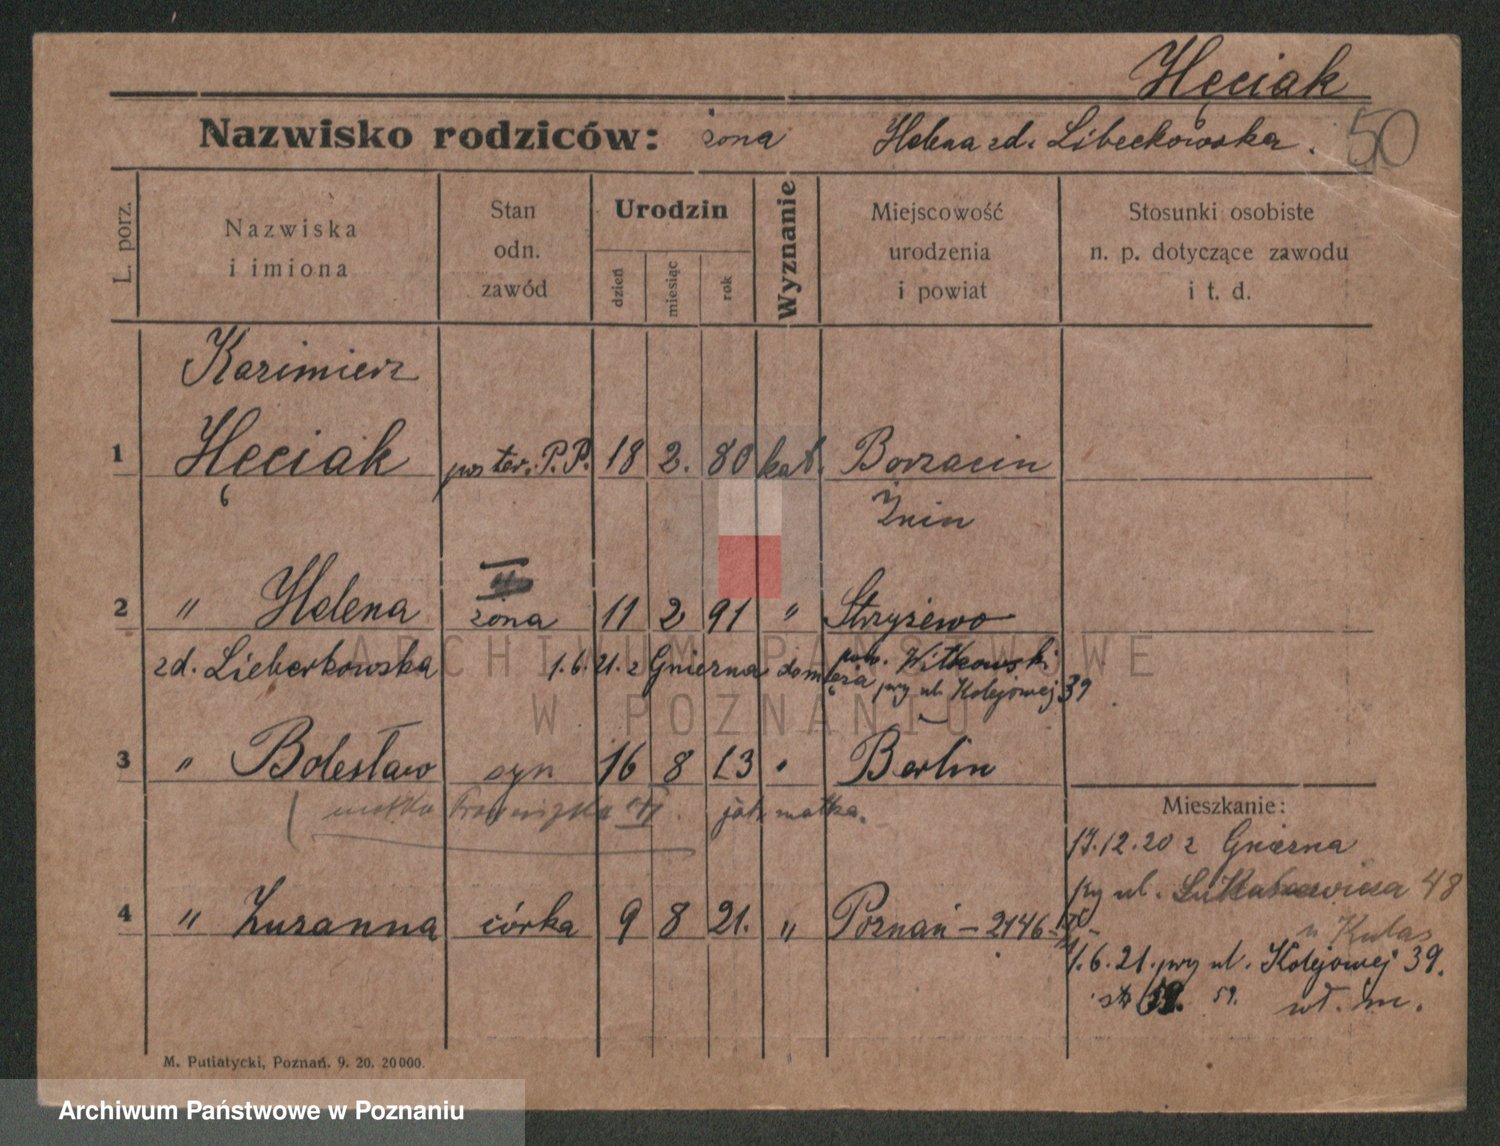 Hęciak
Nazwisko rodziców: żona Helena zd. Libeckowska. 50
L. porz.
Nazwiska
i imiona
Stan
odn.
zawód
Urodzin
dzień
miesiąc
rok
Wyznanie
Miejscowość
urodzenia
i powiat
Stosunki osobiste
n. p. dotyczące zawodu
i t. d.
Kazimierz
1 Hęciak poster. P.P. 18 2. 80 kat. Borzacin
Żnin
II
2 " Helena żona 11 2 91 " Strzyżewo
zd. Lieberkowska 1.6.21. z Gniezna pow. Witkowski
przy ul. Kolejowej 39
3 " Bolesław syn 16 8 13 " Berlin
( matka jak matka.
Mieszkanie:
17.12.20 z Gniezna
przy ul. 48
u Kulas
4 " Zuzanna córka 9 8 21. " Poznań – 2146 –
1.6.21. przy ul. Kolejowej 39.
59. wł. m.
M. Putiatycki, Poznań. 9. 20. 20000.
ARCHIWUM PAŃSTWOWE
W POZNANIU
Archiwum Państwowe w Poznaniu